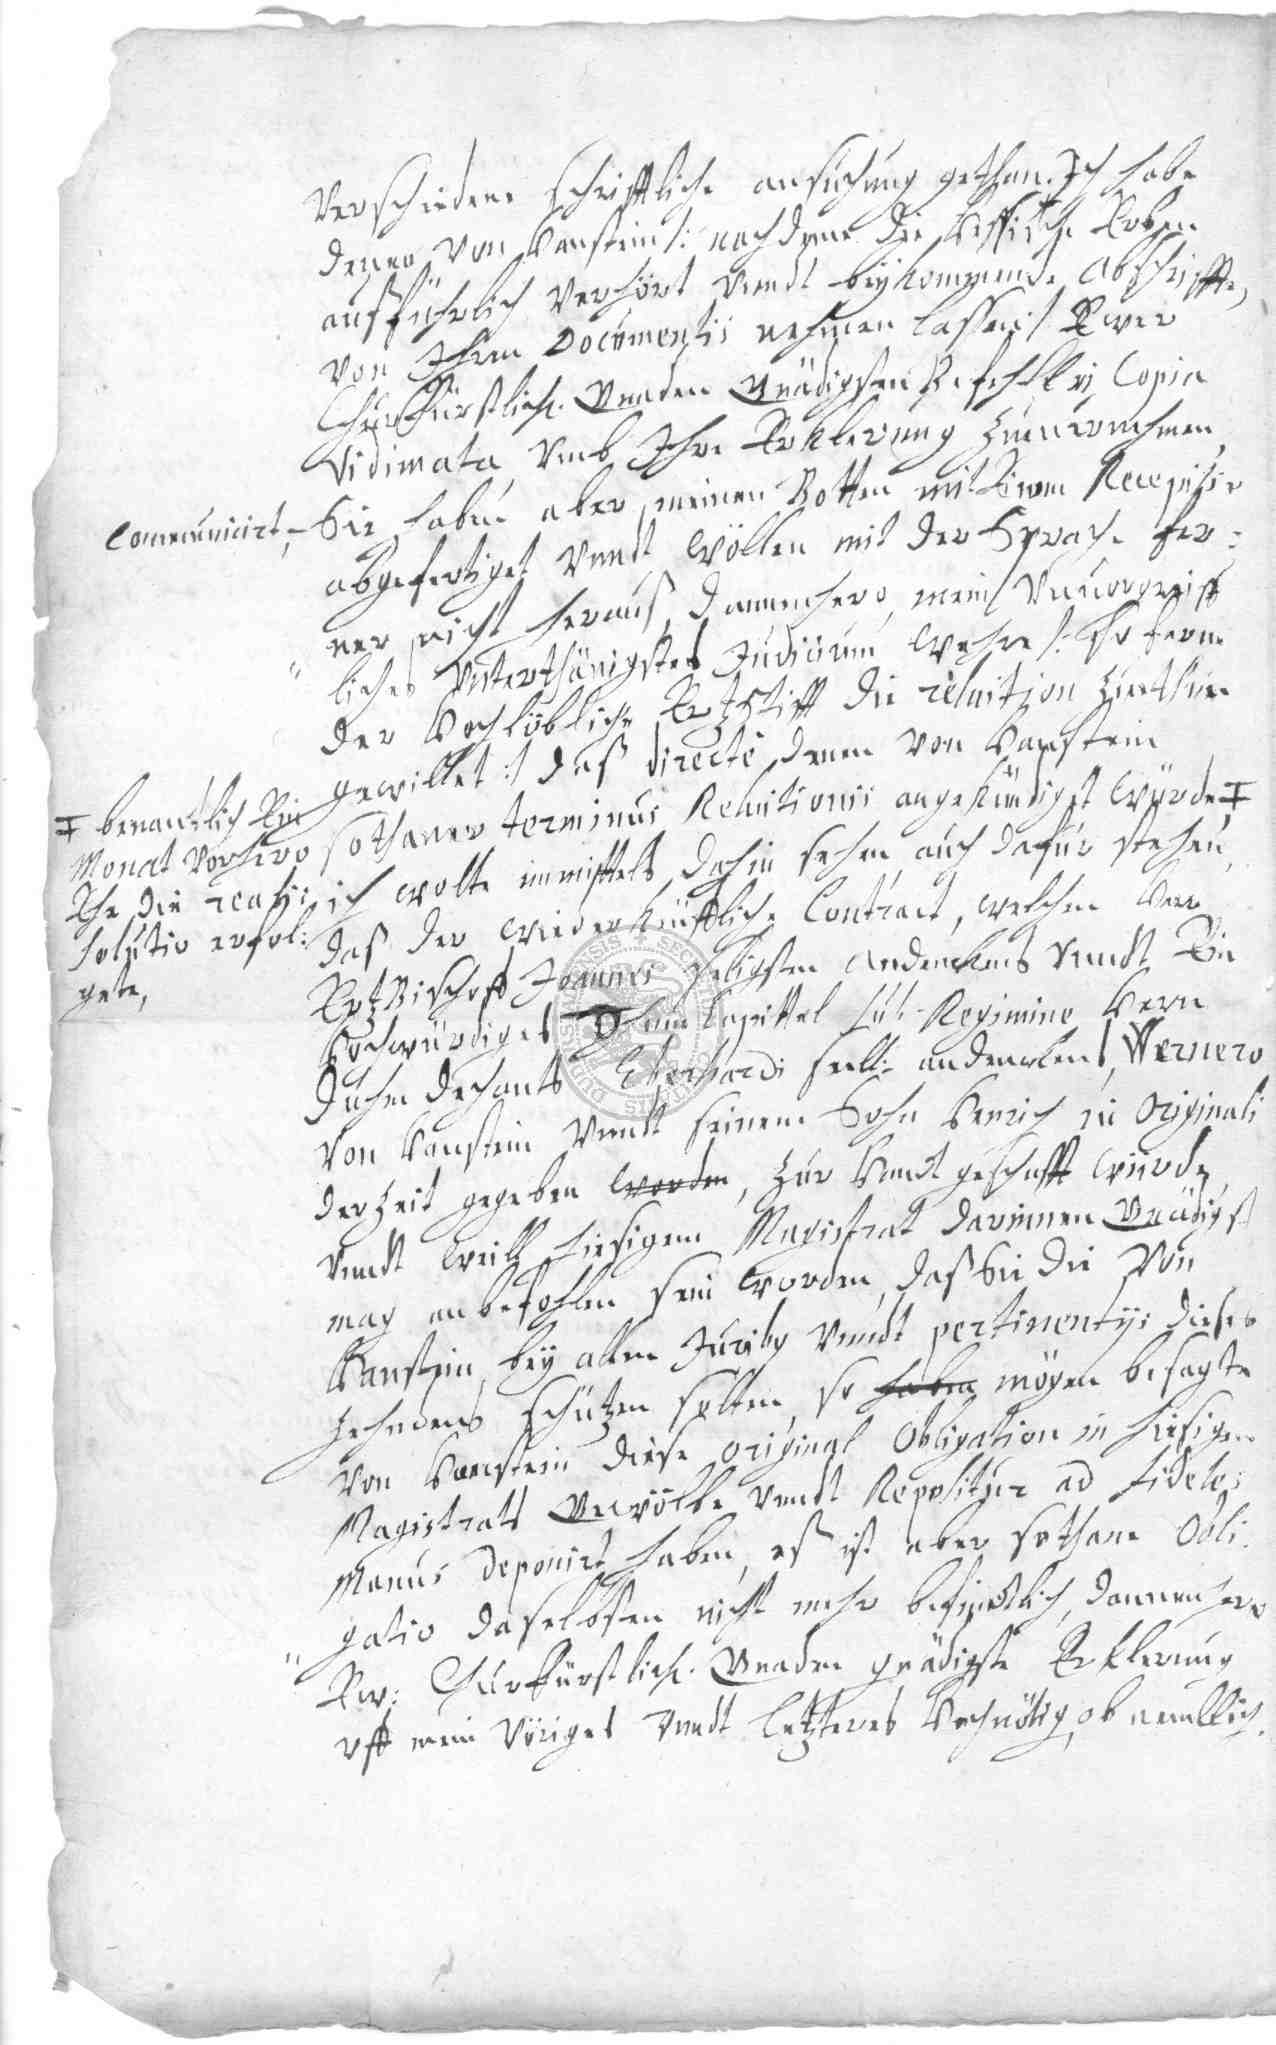 verschiedene schrifftliche ansuchung gethan. Ich habe
denen von Hanstein /: nachdeme die Hessische Erben
außführlich verhört vnndt beykommende Abschriffte,
von Ihren Documentis nehmen lassen :/ Ewer
Churfürstlich. Gnaden Gnädigsten Befehl bey Copia
Vidimata vmb Ihre Erklerung zuuernehmen
communicirt, Sie haben aber meinen Botten mit Einem Recepisse
abgefertiget vnndt wöllen mit der Sprache fer-
ner nicht herauß, dannenhero mein Vnuorgreiff
liches Vnterthänigstes Judicium wehre /: So ferne
der Hochlöbliche Ertzstifft die reluition zuethun
gewillet :/ daß directe denen von Hanstein
sothaner terminus Reluitionis angekündigt würde
benantlich Ein
Monat vorhero
Ehe die realis
solutio erfol:
gete,
ich wolte inmittels dahin sehen, auch dafür stehen
daß der wiederkäuffliche Contract, welchen Herr
Ertzbischoff Joannes seligsten andenckens vnndt Ein
Hochwürdiges Dhum Capittel sub Regimine Hern
Duhm Dechants Eberhardi seel: andenckens, Wernero
von Hanstein vnndt seinem Sohn Henrich in Originali
der zeit gegeben worden, zur Handt geschafft würde,
vnndt weill hiesigem Magistrat darinnen Gnädigst
mag anbefohlen sein worden, daß Sie die Von
Hanstein bey allen Juribus vnndt pertinentiis dieses
zehndens schützen solten, so haben mögen besagte
von Hanstein diese original Obligation in hiesigen
Magistrats Gewölbe vnndt Repositur ad fideles
Manus deponirt haben, eß ist aber sothane Obli:
gatio daselbsten nicht mehr befindtlich, dannenhero
Ew: Churfürstlich. Gnaden gnädigste Erklerung
vff mein Voriges vnndt letzteres Hochnötig, ob nemblich